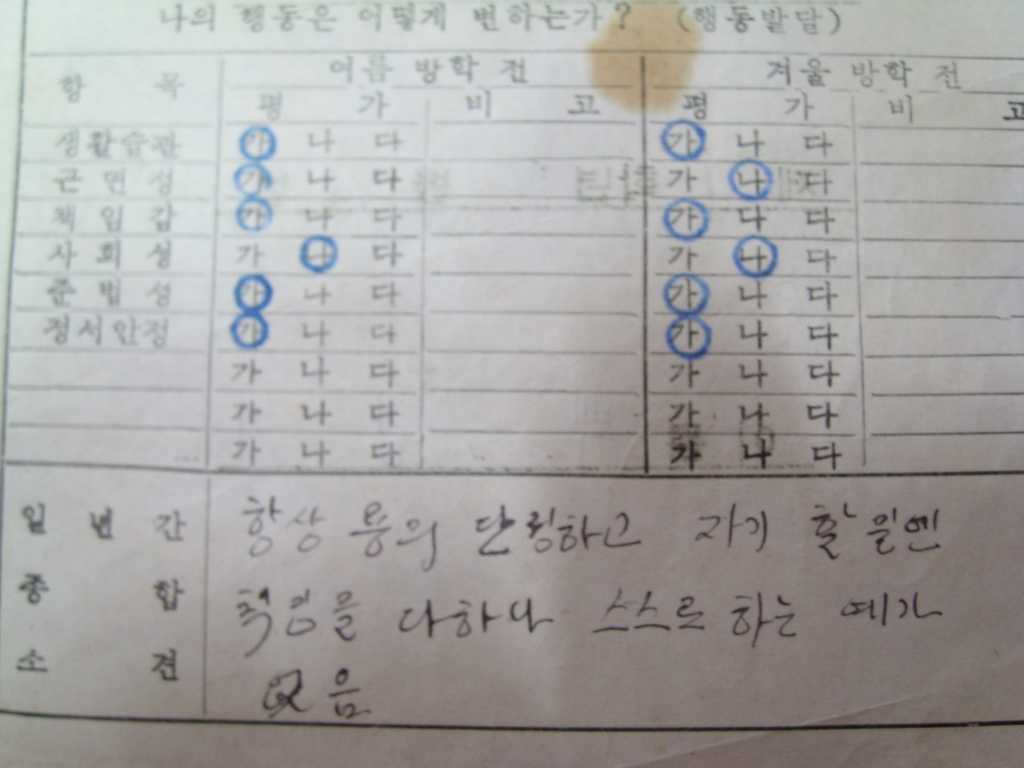 나의 행동은 어떻게 변하는가? (행동발달)
항 목 여름 방학 전 겨울 방학 전
평 가 비 고 평 가 비 고
생활습관 가 나 다 가 나 다
근면성 가 나 다 가 나 다
책임감 가 나 다 가 나 다
사회성 가 나 다 가 나 다
준법성 가 나 다 가 나 다
정서안정 가 나 다 가 나 다
가 나 다 가 나 다
가 나 다 가 나 다
가 나 다 가 나 다
일 년 간 항상 용의 단정하고 자기 할 일엔
종 합 책임을 다하나 스스로 하는 예가
소 견 없음